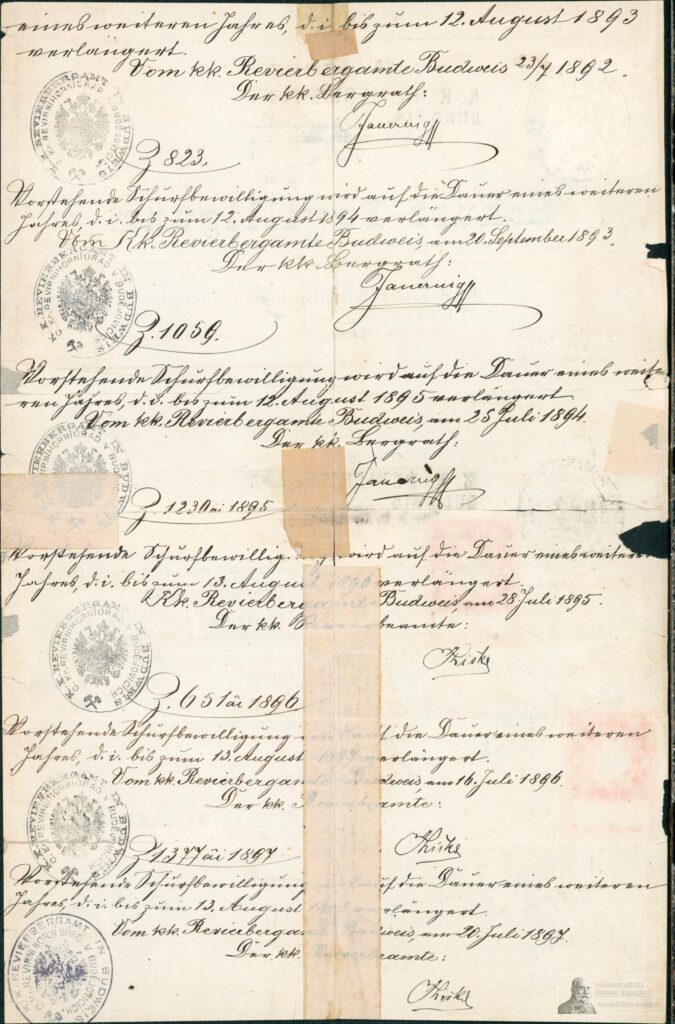 eines weiteren Jahres, d. i. bis zum 12. August 1893
verlängert.
Vom kk. Revierbergamte Budweis 23/7 1892.
Der kk. Bergrath:
K. K. REVIERBERGAMT IN BUDWEIS
Z 823.
Vorstehende Schurfbewilligung wird auf die Dauer eines weiteren
Jahres, d. i. bis zum 12. August 1894 verlängert.
Vom Kk. Revierbergamte Budweis am 20. September 1893.
Der kk Bergrath:
K. K. REVIERBERGAMT IN BUDWEIS
Z. 1059.
Vorstehende Schurfbewilligung wird auf die Dauer eines weite-
ren Jahres, d. i. bis zum 12. August 1895 verlängert
Vom kk. Revierbergamte Budweis, am 25 Juli 1894.
Der kk. Bergrath:
IN BUDWEIS
Z. 1895
Vorstehende Schurfbewillig wird auf die Dauer eines weiteren
Jahres, d. i. bis zum 13. August 1896 verlängert.
Kk. Revierbergamte Budweis, am 28 Juli 1895.
Der kk. Revierbeamte:
K. K. REVIERBERGAMT IN BUDWEIS
Z. 1896
Vorstehende Schurfbewilligung wird auf die Dauer eines weiteren
Jahres, d. i. bis zum 13. August 1897 verlängert.
Vom kk. Revierbergamte Budweis, am 16. Juli 1896.
Der kk. Revierbeamte:
K. K. REVIERBERGAMT IN BUDWEIS
Z 1897
Vorstehende Schurfbewilligung wird auf die Dauer eines weiteren
Jahres, d. i. bis zum 13. August 1898 verlängert.
Vom kk. Revierbergamte Budweis, am 20. Juli 1897.
Der kk. Revierbeamte:
K. K. REVIERBERGAMT IN BUDWEIS
Franz Josefa I